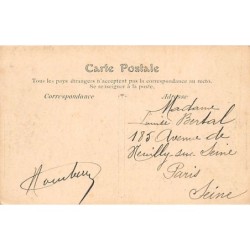 Carte Postale
Tous les pays étrangers n'acceptent pas la correspondance au recto.
Se renseigner à la poste.
Correspondance
Adresse
Madame
Bertal
185 Avenue de
Neuilly sur Seine
Paris
Seine